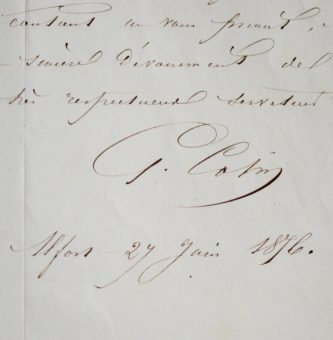 comptant
sincère dévouement de
très respectueux serviteur
G. Colin
Alfort 27 Juin 1876.